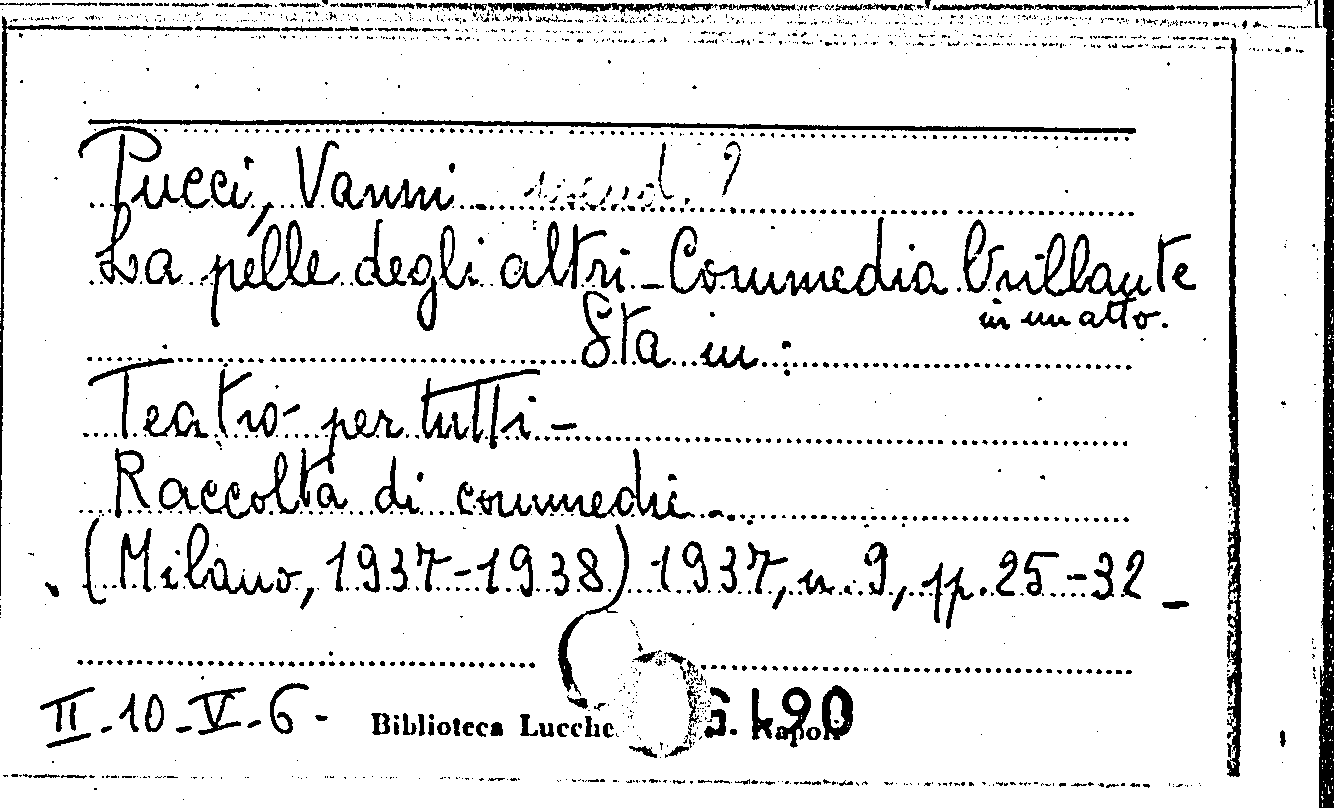 Pucci, Vanni - pseud. ?
La pelle degli altri - Commedia brillante
in un atto.
Sta in :
Teatro per tutti -
Raccolta di commedie -
(Milano, 1937-1938) 1937, n. 9, pp. 25-32 -
II-10-V-6- Biblioteca Lucche Napoli